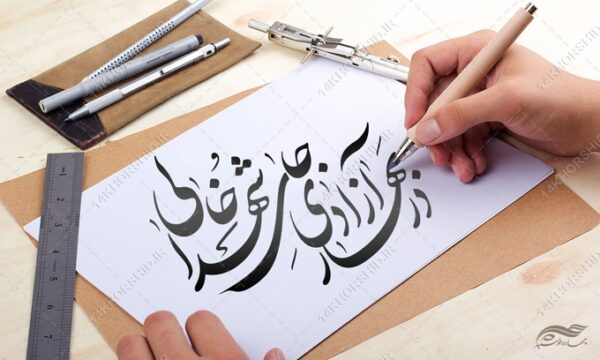 در بهار آزادی جای شهدا خالی
14KHORSHID.IR
1 2 3 5 6 7